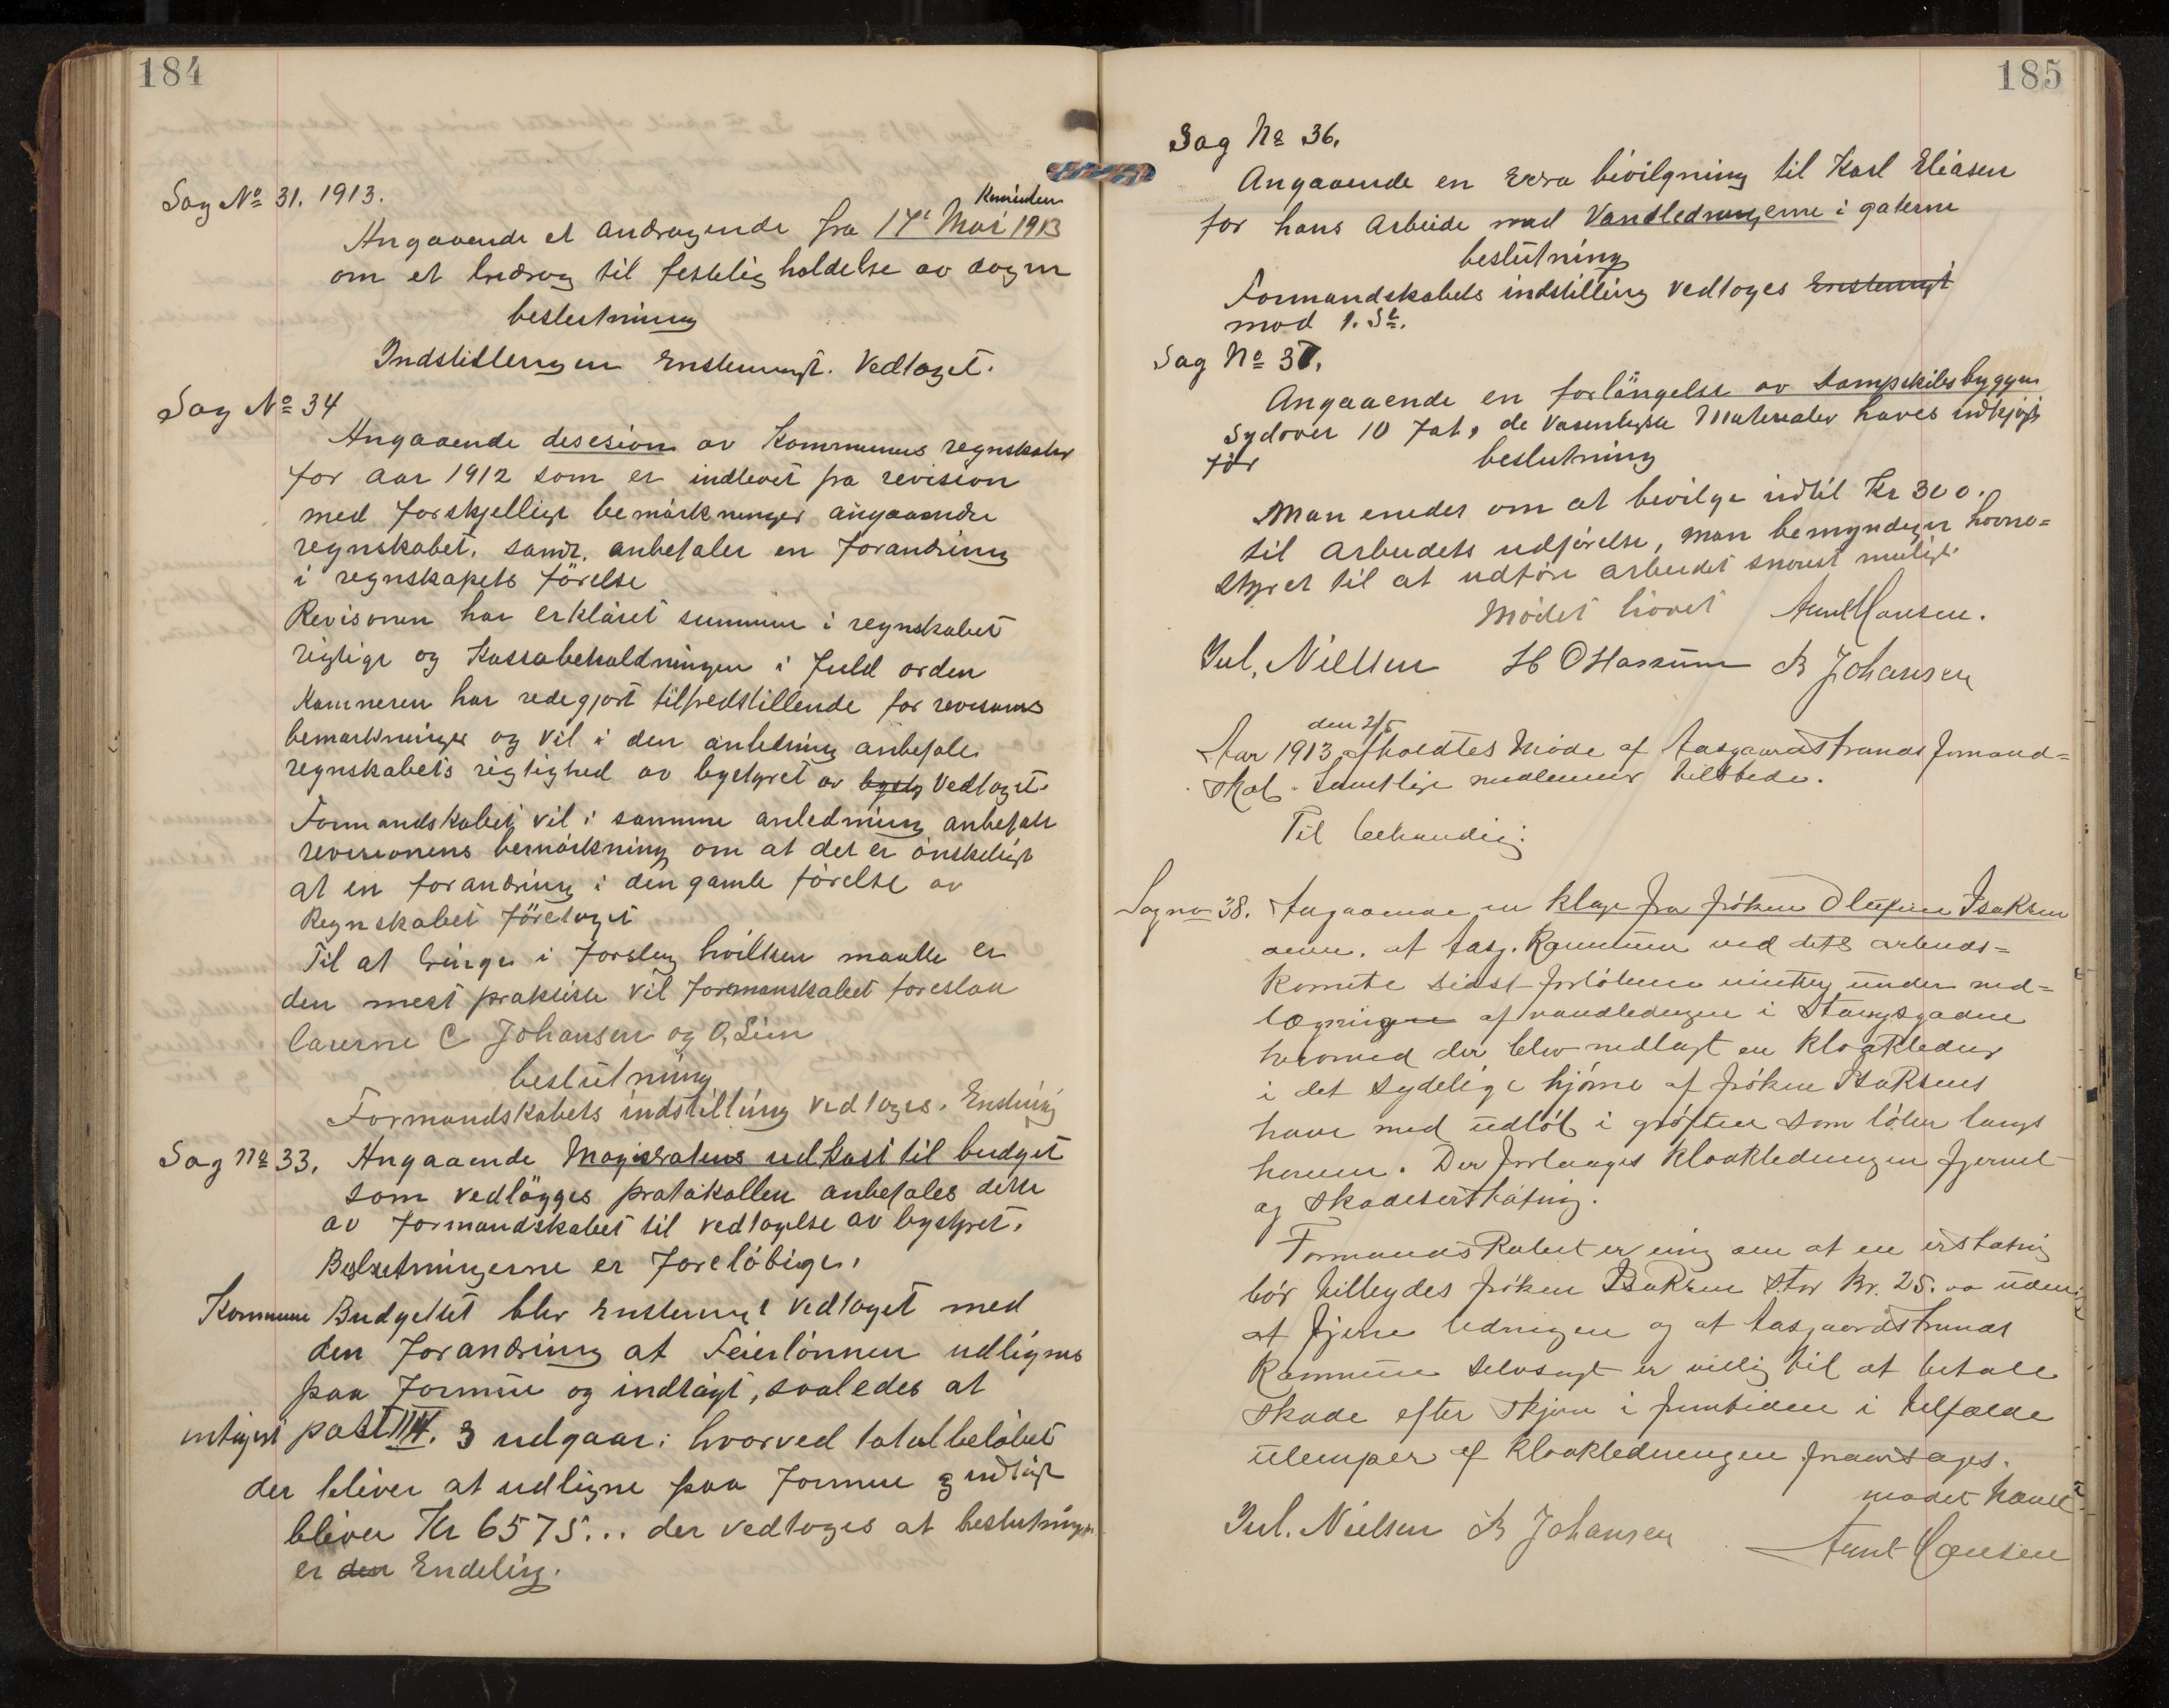 184
Sag No 31. 1913.
Komiteen
Angaaende et andragende fra 17de Mai 1913
om et bidrag til festelig holdelse av dagen
beslutning
Indstillingen Enstemmigt. Vedtaget.
Sag No 34
Angaaende desesion av Kommunens regnskaber
for aar 1912 som er indlevet fra revision
med forskjellige bemärkninger angaaende
regnskabet, samt. anbefaler en forandring
i regnskapets förelse
Revisoren har erklæret summene i regnskabet
rigtige og Kassabeholdningen i fuld orden
Kæmneren har redegjort tilfredstillende for revisorens
bemærkninger og vil i den anledning anbefale
regnskabets rigtighed av bystyret av bysty Vedtaget.
Formandskabet vil i samme anledning anbefale
revisionens bemärkning om at det er önskeligt
at en forandring i den gamle förelse av
Regnskabet företaget
Til at bringe i forslag hvilken maate er
den mest praktiske vil formanskabet foreslaa
C Johansen og O, Lien
beslutning
Formandskabets indstilling vedtoges. Enstemig
Sag No 33. Angaaende Magistratens udkast til budget
som vedlägges protokollen anbefales dette
av formandskabet til vedtagelse av bystyret.
Beslutningerne er foreløbige.
Kommune Budgettet blev Enstemmigt vedtaget med
den forandring at Feierlønnen udlignes
paa formue og indtägt, saaledes at
post III. 3 udgaar; hvorved totalbeløbet
der bliver at udligne paa formue og indtägt
bliver Kr 6575... der vedtoges at beslutningen
er den Endelig.
185
Sag No 36.
Angaaende en Extra bivilgning til Karl Eliasen
for hans arbeide med Vandledningerne i gaterne
beslutning
Formandskabets indstilling vedtoges Enstemigt
mod 1. St.
Sag No 37.
Angaaende en forlängelse av Dampskibsbryggen
Sydover 10 Fot, de Vasentligste Materialer haves indkjøpt
før
beslutning
Man enedes om at bevilge indtil Kr 300.
til arbeidets udførelse, man bemyndiger havne=
styret til at udføre arbeidet snarest muligt.
Mødet hævet Arnt Hansen.
Jul. Nielsen H O Hassum B Johansen
den 2/5
Aar 1913 afholdtes Møde af Aasgaardstrands formand=
skab. Samtlige medlemmer tilstede.
Til behandlig:
Sag no 38. Angaaende en klage fra frøken Olufine Isaksen
at Aasg. Kommune ved dets arbeids=
komite sidst forløbene vinter under ned=
lægningen af vandledningen i Stangsgaden
hvormed der blev nedlagt en kloakledning
i det sydelige hjørne af frøken Isaksens
have med udløb i grøften som løber langs
haven. Der forlanges kloakledningen fjernet
og skadeserstatnig.
Formandskabet er enig om at en erstatnig
bør tilbydes frøken Isaksen stor Kr. 25.00 uden
at fjerne ledningen og at Aasgaardstrands
Kommune selvsagt er villig til at betale
skade efter skjøn i fremtiden i tilfælde
ulemper af kloakledningen foraarsages.
mødet hævet
Jul. Nielsen B Johansen Arnt Hansen